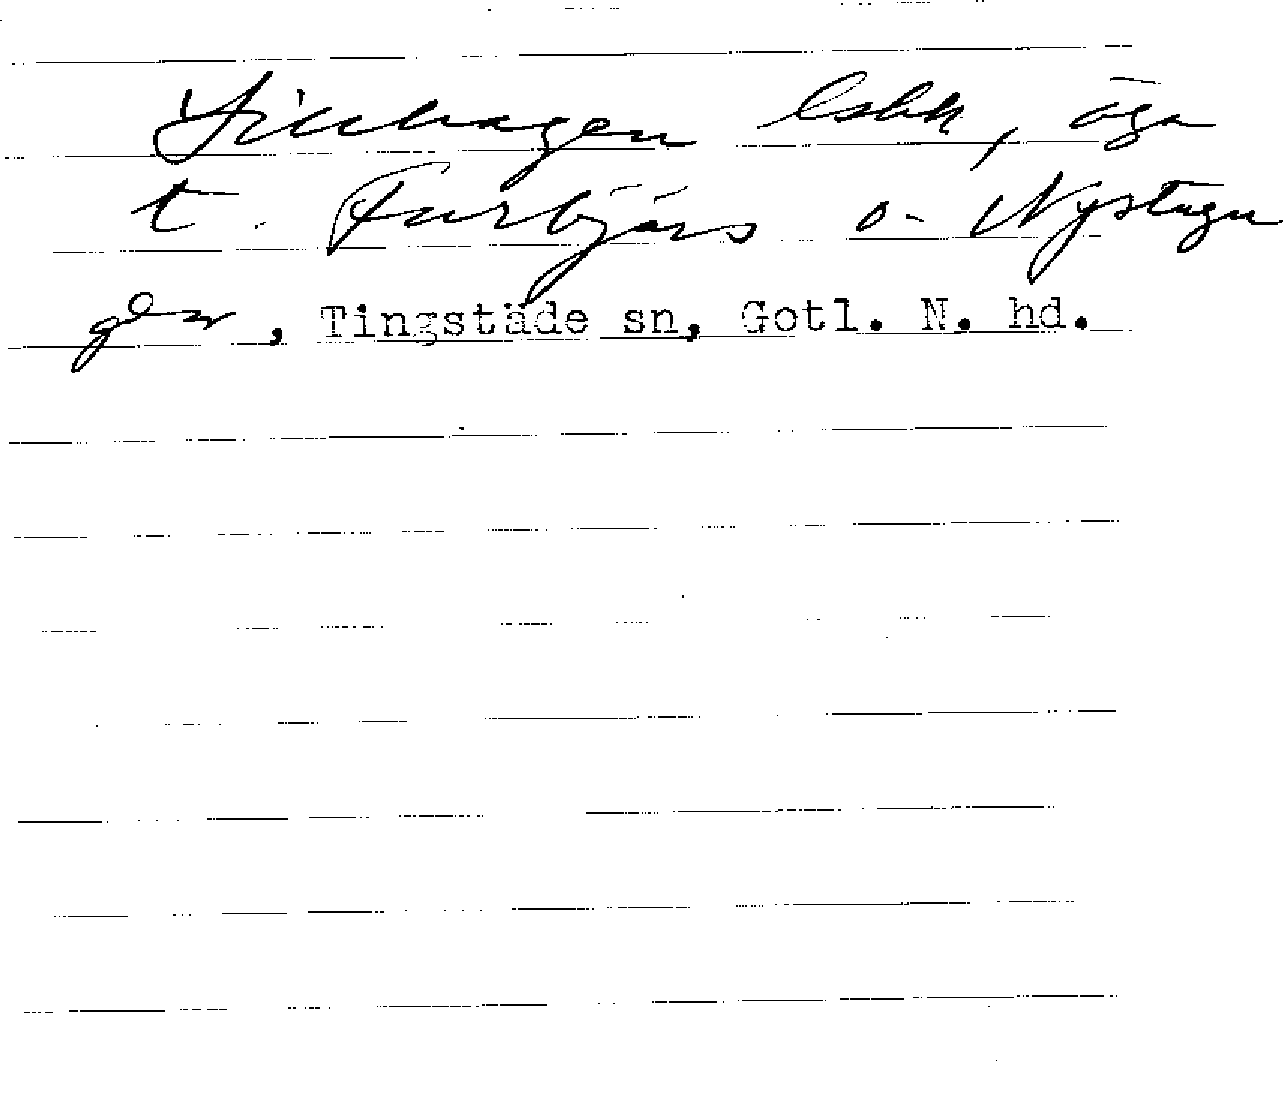 Linhagen lsbk, äga
t. Furbjärs o. Nystugu
gdr, Tingstäde sn, Gotl. N. hd.